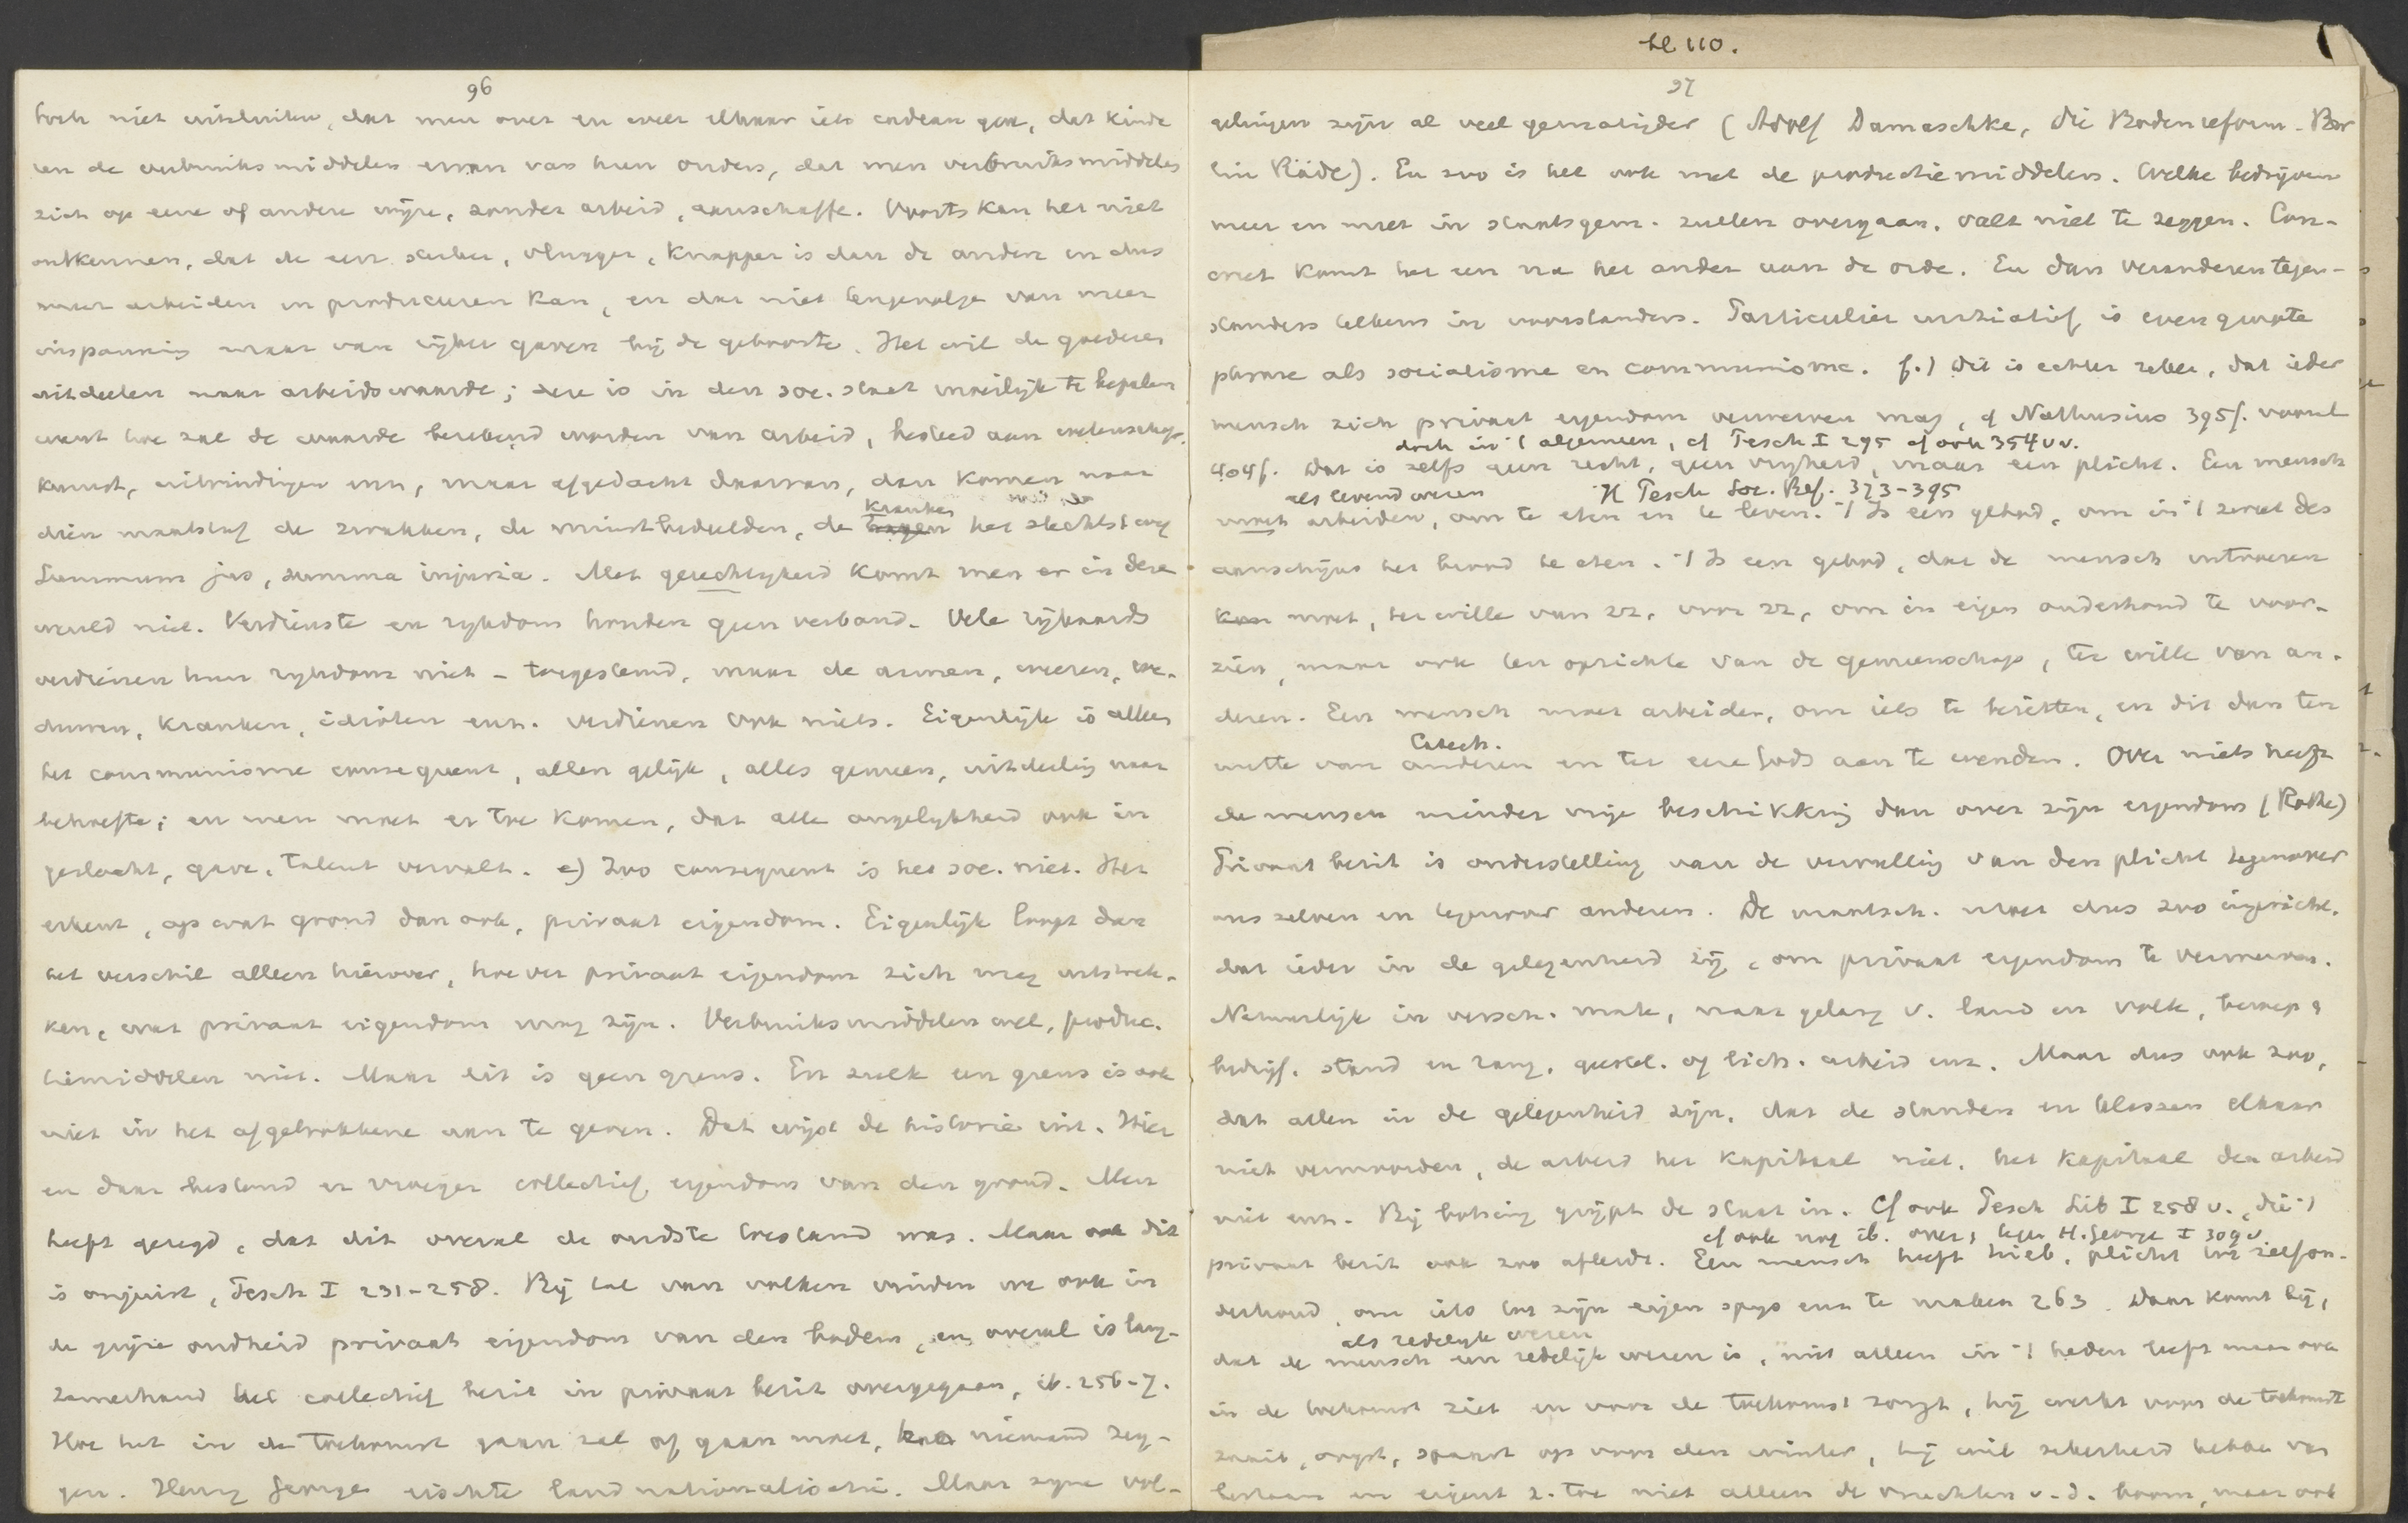 96
toch niet uitsluiten, dat men over en weer elkaar iets cadeau gaf, dat kinde
ren de verbruiksmiddelen erven van hun ouders, dat men verbruiksmiddelen
zich op eene of andere wijze, zonder arbeid, aanschaffe. Voorts kan het niet
ontkennen, dat de een sterker, vlugger, knapper is dan de andere en dus
meer arbeiden en produceeren kan, en dat niet tengevolge van meer
inspanning maar van rijker gaven bij de geboorte. Het wil de goederen
uitdeelen naar arbeidswaarde; deze is in den soc. staat moeilijk te bepalen
want hoe zal de waarde berekend worden van arbeid, besteed aan wetenschap,
kunst, uitvindingen enz, maar afgedacht daarvan, dan komen naar
kranken
dien maatstaf de zwakken, de minstbedeelden, de het slechtst weg
Summum jus, summa injuria. Met gerechtigheid komt men er in deze
wereld niet. Verdienste en rijkdom houden geen verband. Vele rijkaards
verdienen hun rijkdom niet - toegestemd, maar de armen, weezen, we-
duwen, kranken, idioten enz. verdienen ook niets. Eigenlijk is alleen
het communisme consequent, allen gelijk, alles gemeen, uitdeeling naar
behoefte; en men moet er toe komen, dat alle ongelijkheid ook in
geslacht, gave, talent vervalt. e) Zoo consequent is het soc. niet. Het
erkent, op wat grond dan ook, privaat eigendom. Eigenlijk loopt dan
het verschil alleen hierover, hoever privaat eigendom zich mag uitstrek-
ken, wat privaat eigendom mag zijn. Verbruiksmiddelen wel, produc-
tiemiddelen niet. Maar dit is geen grens. En zulk een grens is ook
niet in het afgetrokkene aan te geven. Dat wijst de historie uit. Hier
en daar bestond er vroeger collectief eigendom van den grond. Men
heeft gezegd, dat dit overal de oudste toestand was. Maar ook dit
is onjuist, Pesch I 231-258. Bij tal van volken vinden we ook in
de grijze oudheid privaat eigendom van den bodem, en overal is lang-
zamerhand het collectief bezit in privaat bezit overgegaan, ib. 256-7.
Hoe het in de toekomst gaan zal of gaan moet, kan niemand zeg-
gen. Henry George eischte landnationalisatie. Maar zijne vol-
bl 110.
97
gelingen zijn al veel gematigder (Adolf Damaschke, Die Bodenreform. Ber
lin Räde). En zoo is het ook met de productiemiddelen. Welke bedrijven
meer en meer in staatsgem. zullen overgaan, valt niet te zeggen. Con-
creet komt het een na het ander aan de orde. En dan veranderen tegen-
standers telkens in voorstanders. Particulier initiatief is even groote
phrase als socialisme en communisme. f.) Dit is echter zeker, dat ieder
mensch zich privaat eigendom verwerven mag, cf Nathusius 395f. vooral
doch in 't algemeen, cf Pesch I 295 cf ook 354vv.
404f. Dat is zelfs geen recht, geen vrijheid, maar een plicht. Een mensch
als levend wezen H Pesch Soc. Bef. 373-395
moet arbeiden, om te eten en te leven. 't Is een gebod, om in 't zweet des
aanschijns het brood te eten. 't Is een gebod, dat de mensch
moet, ter wille van zz, voor zz, om in eigen onderhoud te voor-
zien, maar ook ten opzichte van de gemeenschap, ter wille van an-
deren. Een mensch moet arbeiden, om iets te bezitten, en dit dan ten
Catech.
nutte van anderen en ter eere Gods aan te wenden. Over niets heeft
de mensch minder vrije beschikking dan over zijn eigendom (Rothe)
Privaat bezit is onderstelling van de vervulling van den plicht tegenover
ons zelven en tegenover anderen. De maatsch. moet dus zoo ingericht,
dat ieder in de gelegenheid zij, om privaat eigendom te verwerven.
Natuurlijk in versch. mate, naar gelang v. land en volk, beroep &
bedrijf, stand en rang, geestel. of lich. arbeid enz. Maar dus ook zoo,
dat allen in de gelegenheid zijn, dat de standen en klassen elkaar
niet vermoorden, de arbeid het kapitaal niet, het kapitaal den arbeid
niet enz. Bij botsing grijpt de staat in. Cf ook Pesch Lib I 258 v., die 't
cf ook nog ib. over, tegen H. George I 309v
privaat bezit ook zoo afleidt. Een mensch heeft plicht tot zelfon-
derhoud, om iets tot zijn eigen spijs enz te maken 263. Daar komt bij,
als redelijk wezen
dat de mensch een redelijk wezen is, niet alleen in 't heden leeft maar ook
in de toekomst ziet en voor de toekomst zorgt, hij werkt voor de toekomst
zaait, oogst, spaart op voor den winter, hij wil zekerheid hebben van
bestaan en eigent z. toe niet alleen de vruchten v. d. boom, maar ook